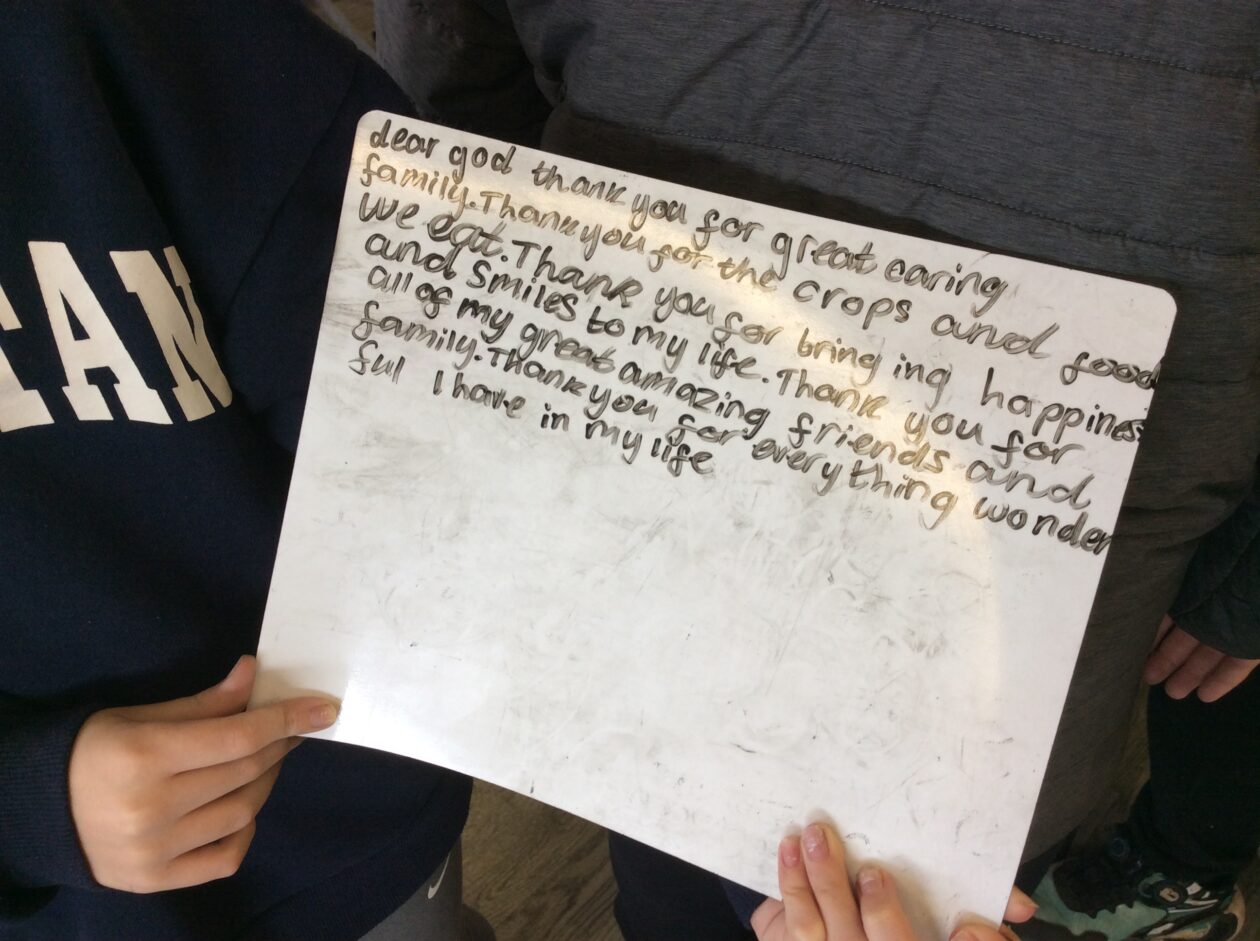 TAN
dear god thank you for great caring
family. Thank you for the crops and food
we eat. Thank you for bring ing happiness
and smiles to my life. Thank you for
all of my great amazing friends and
family. Thank you for everything wonder
ful I have in my life